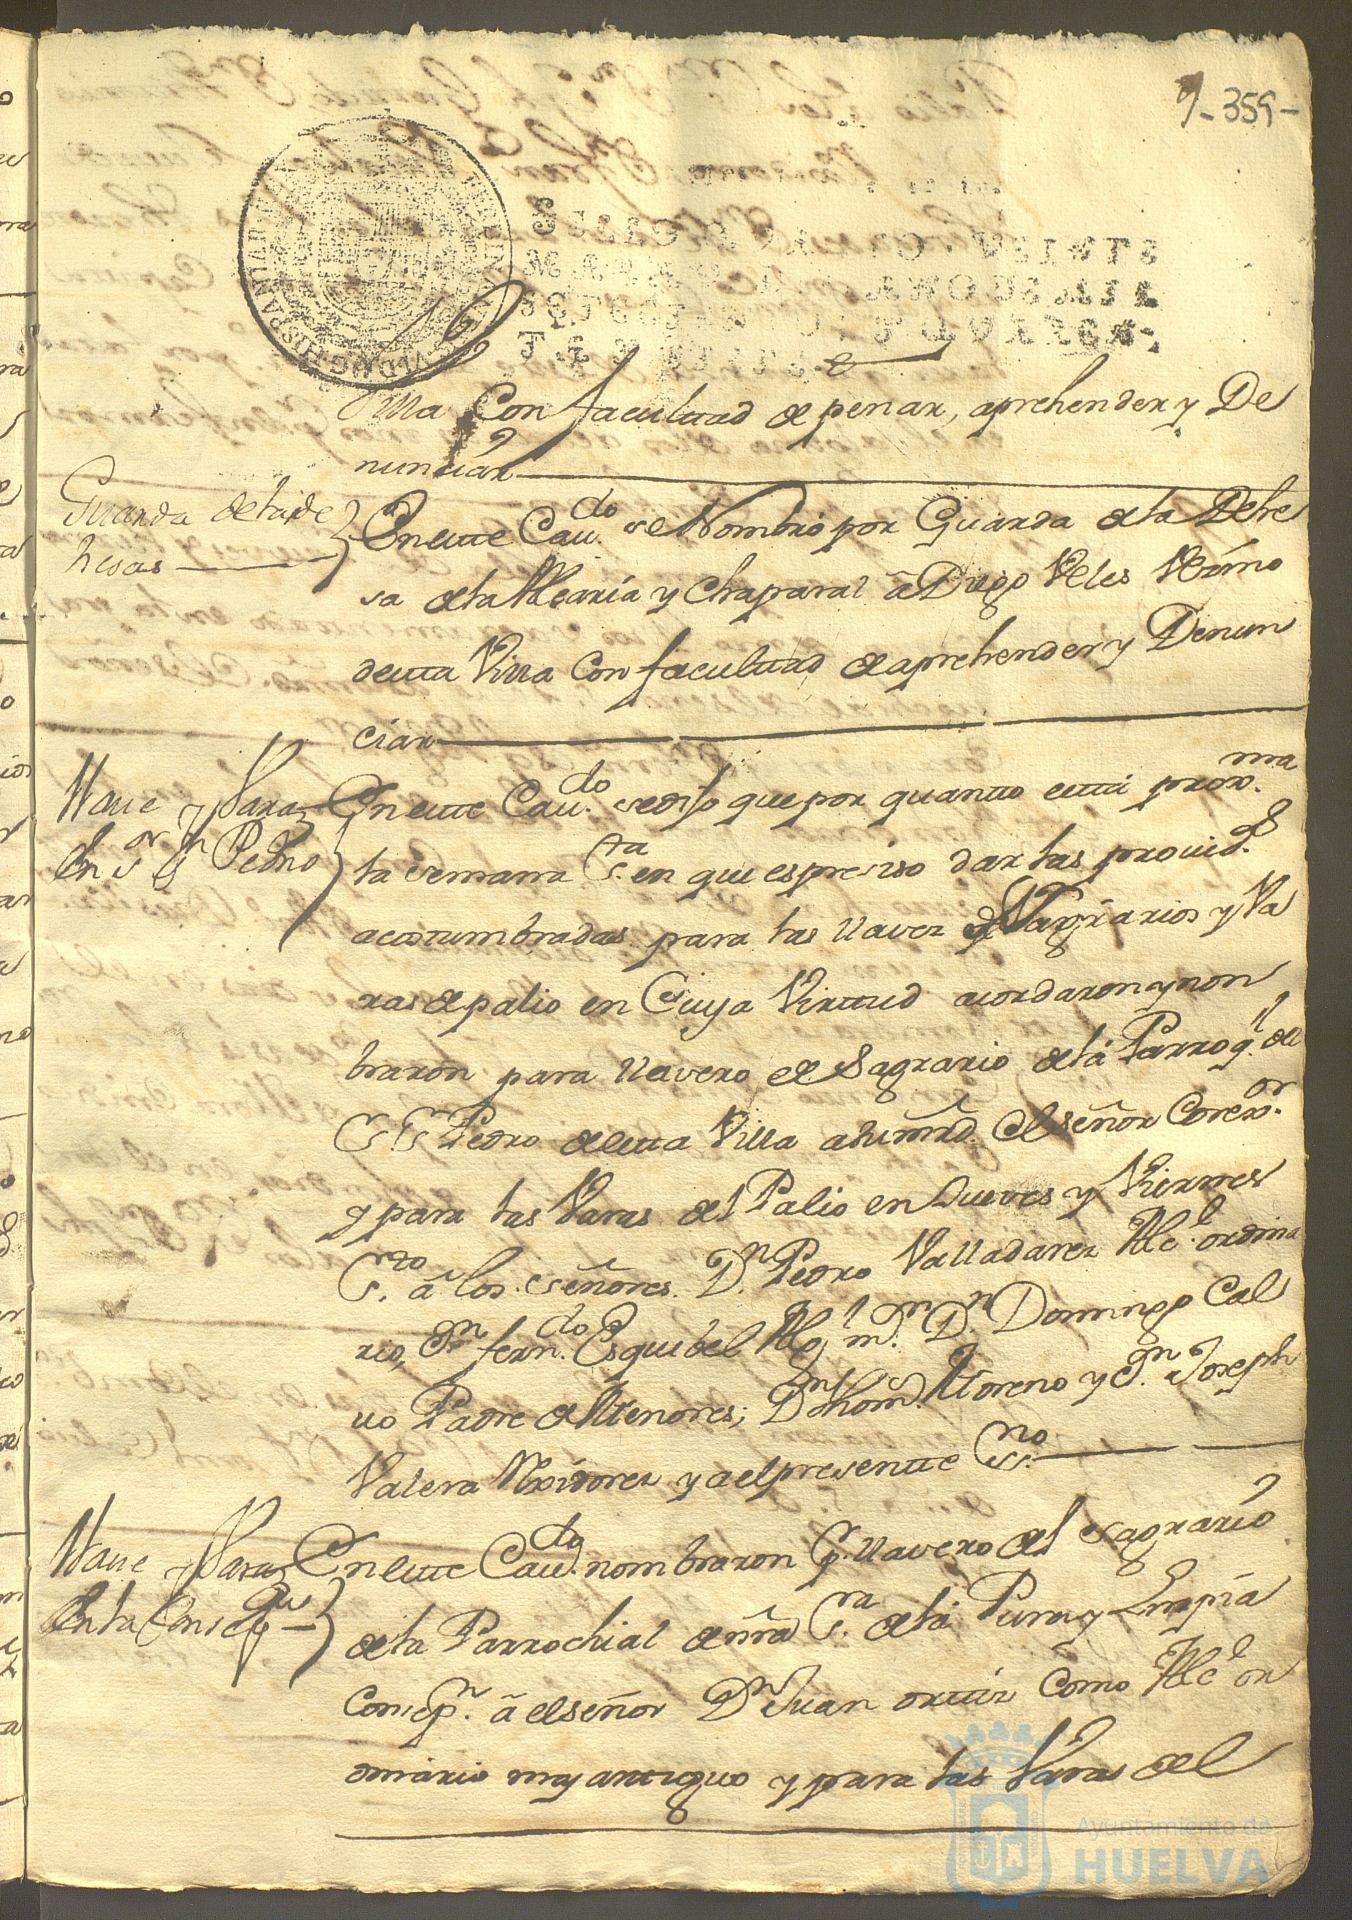 9-359-
Villa Con facultad de penar, aprehender y De
nunciar
Guarda de la de
hesas
En este Cau.do se Nombró por Guarda de la Dehe
sa de la Alcaria y Chaparal â Diego Veles Vezino
de esta Villa Con facultad de aprehender y Denun
ciar
Llaue y Varaz
En s.or Sn Pedro
En este Cau.do se dijo que por quanto está proxi.ma
la semana S.ta en que es presiso dar las prouid.s
acostumbradas para las llavez de Sagrarios y Va
ras de palio en Cuya Virttud acordaron y non
braron para llavero de Sagrario de la Parroq.l de
S.or S.n Pedro de esta Villa a su mrd. el señor Corex.or
y para las Varas del Palio en Jueves y Viernes
S.to â los señores D.n Pedro Valladarez Alc.e ordina
rio, D.n fern.do Esquibel Alg.l m.r D.n Domingo Cal
uo Padre de Menores; D.n thom.s Moreno y D.n Joseph
Valera Rexidorez y a el presente Ess.no
Llaue y Varaz
En la Consepn
En este Cau.do nombraron p.r llavero del sagrario
de la Parrochial de nra S.ra de la Pura y Limpia
Consep.n â el señor D.n Juan ortiz Como Alc.e or
dinario mas antiguo y para las Varas del
Ayuntamiento de
HUELVA